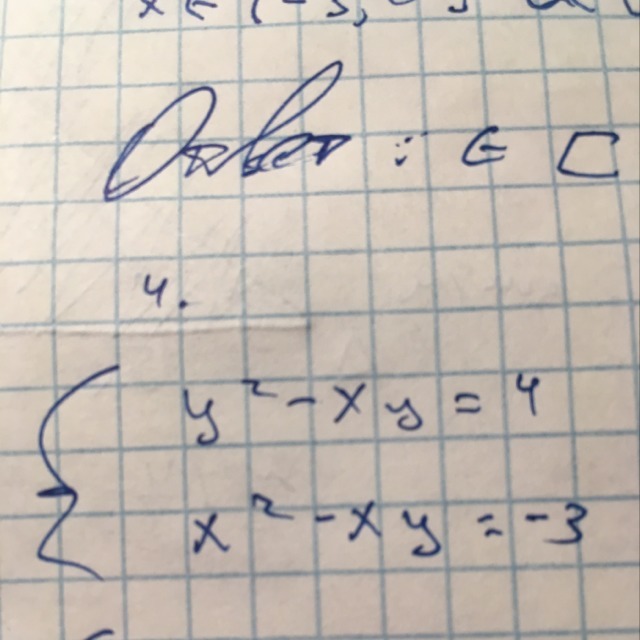 Ответ: ∈ [
4.
{ y² - xy = 4
x² - xy = -3